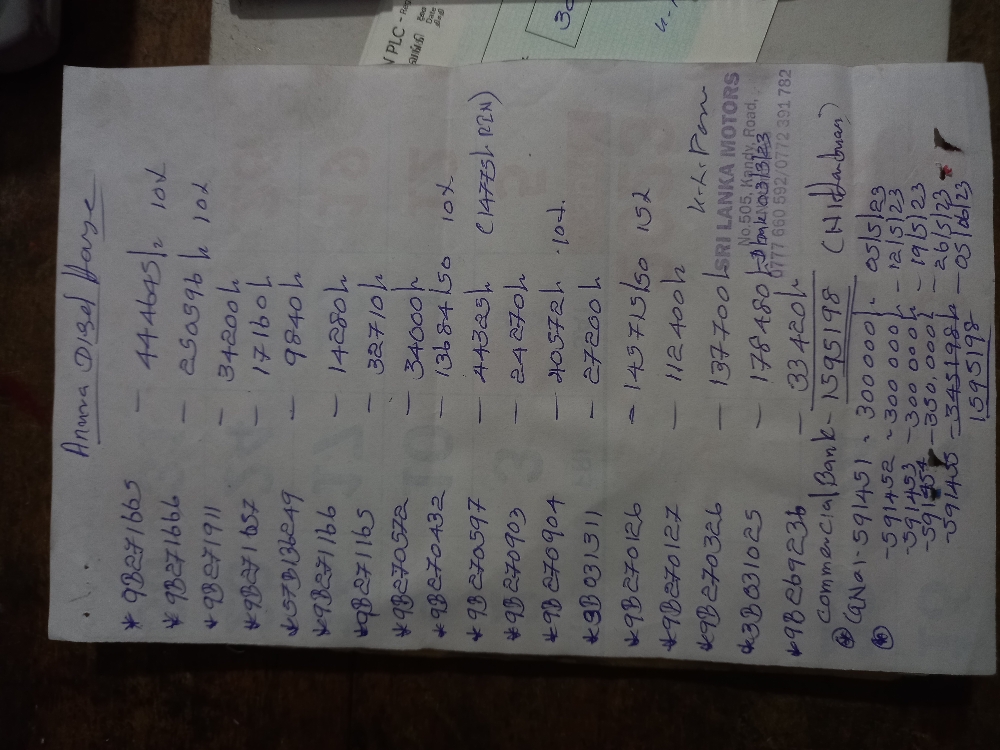 Anura Disal House
* 9B271665 - 444645/= 10%
* 9B271666 - 250596/= 10%
* 9B271911 - 34200/=
* 9B271657 - 17160/=
* 57B136249 - 9840/=
* 9B271166 - 14280/=
* 9B271165 - 32710/=
* 9B270572 - 34000/=
* 9B270432 - 13684/50 10%
* 9B270597 - 44325/= (14775/= RTN)
* 9B270903 - 24270/=
* 9B270904 - 40572/= 10%
* 9B031311 - 27200/=
* 9B270126 - 145715/50 152
* 9B270127 - 112400/=
* 9B270326 - 137700/=
* 3B031025 - 178480/=
* 9B269236 - 33420/=
SRI LANKA MOTORS
No.505, Kandy, Road,
0777 660 592/0772 391 782
Commercial Bank - 1595198
591451 - 300000/= 05/5/23
- 591452 - 300000/= - 12/5/23
- 591453 - 300000/= - 19/5/23
- 591454 - 350.000/= - 26/5/23
- 591455 - 345198/= - 05/06/23
1595198
N PLC
Date